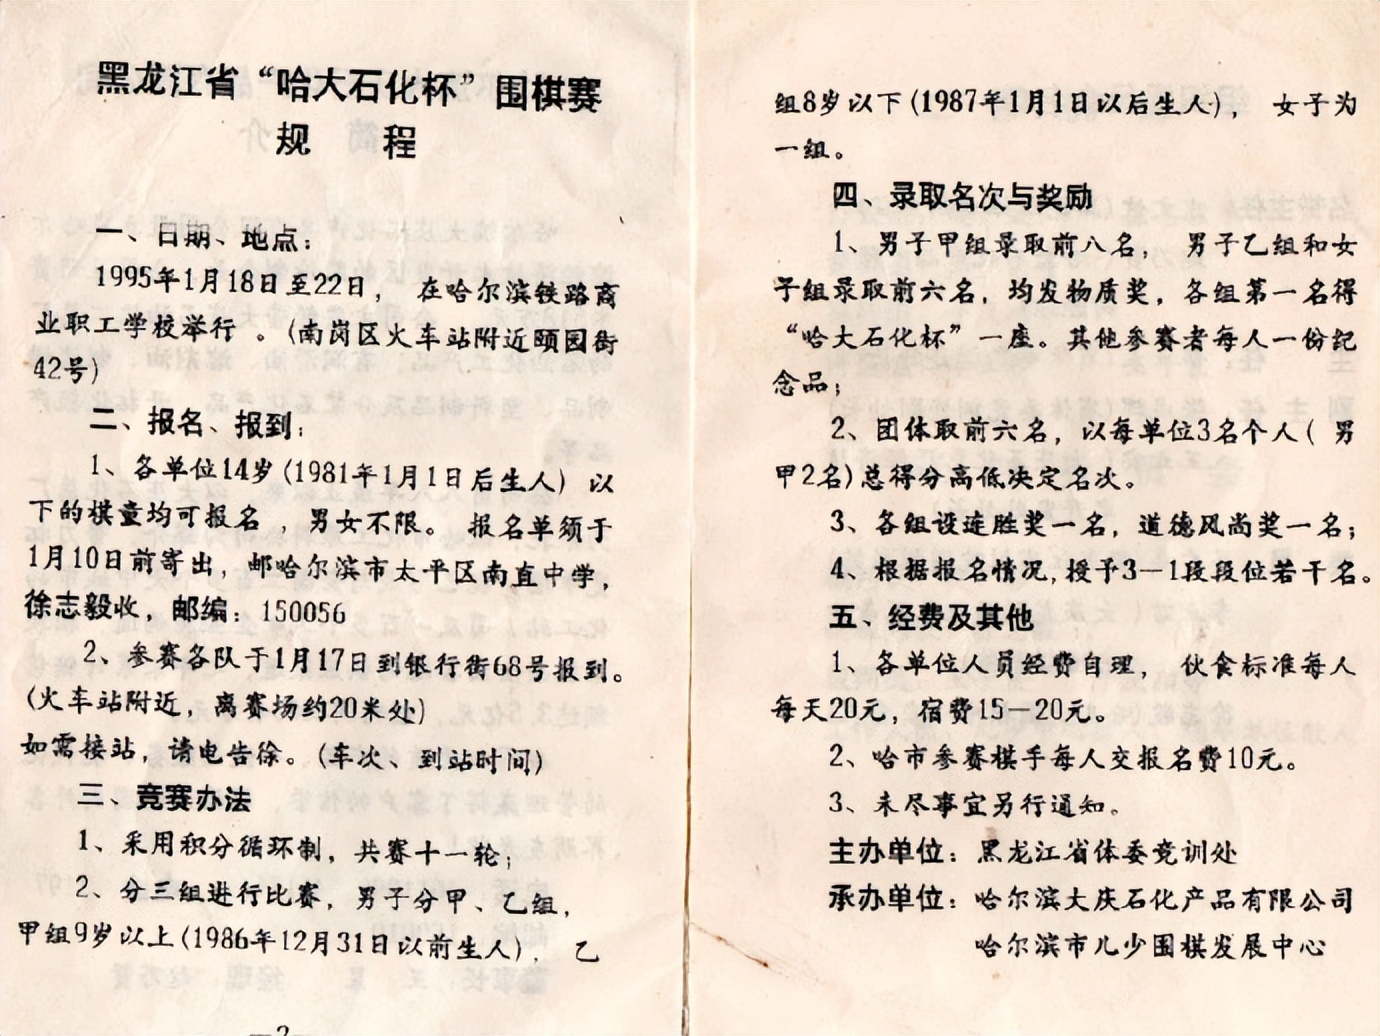 黑龙江省“哈大石化杯”围棋赛
规 程
一、日期、地点：
1995年1月18日至22日， 在哈尔滨铁路商
业职工学校举行 。(南岗区火车站附近颐园街
42号)
二、报名、报到；
1、各单位14岁(1981年1月1日后生人) 以
下的棋童均可报名 ，男女不限。 报名单须于
1月10日前寄出，邮哈尔滨市太平区南直中学，
徐志毅收，邮编：150056
2、参赛各队于1月17日到银行街68号报到。
(火车站附近，离赛场约20米处)
如需接站，请电告徐。(车次、到站时间)
三、竞赛办法
1、采用积分循环制，共赛十一轮；
2、分三组进行比赛，男子分甲、乙组，
甲组9岁以上(1986年12月31日以前生人)， 乙
—2—
组8岁以下(1987年1月1日以后生人)， 女子为
一组。
四、录取名次与奖励
1、男子甲组录取前八名， 男子乙组和女
子组录取前六名，均发物质奖，各组第一名得
“哈大石化杯”一座。其他参赛者每人一份纪
念品；
2、团体取前六名，以每单位3名个人( 男
甲2名)总得分高低决定名次。
3、各组设连胜奖一名，道德风尚奖一名；
4、根据报名情况，授予3—1段段位若干名。
五、经费及其他
1、各单位人员经费自理， 伙食标准每人
每天20元，宿费15—20元。
2、哈市参赛棋手每人交报名费10元。
3、未尽事宜另行通知。
主办单位：黑龙江省体委竞训处
承办单位：哈尔滨大庆石化产品有限公司
哈尔滨市儿少围棋发展中心